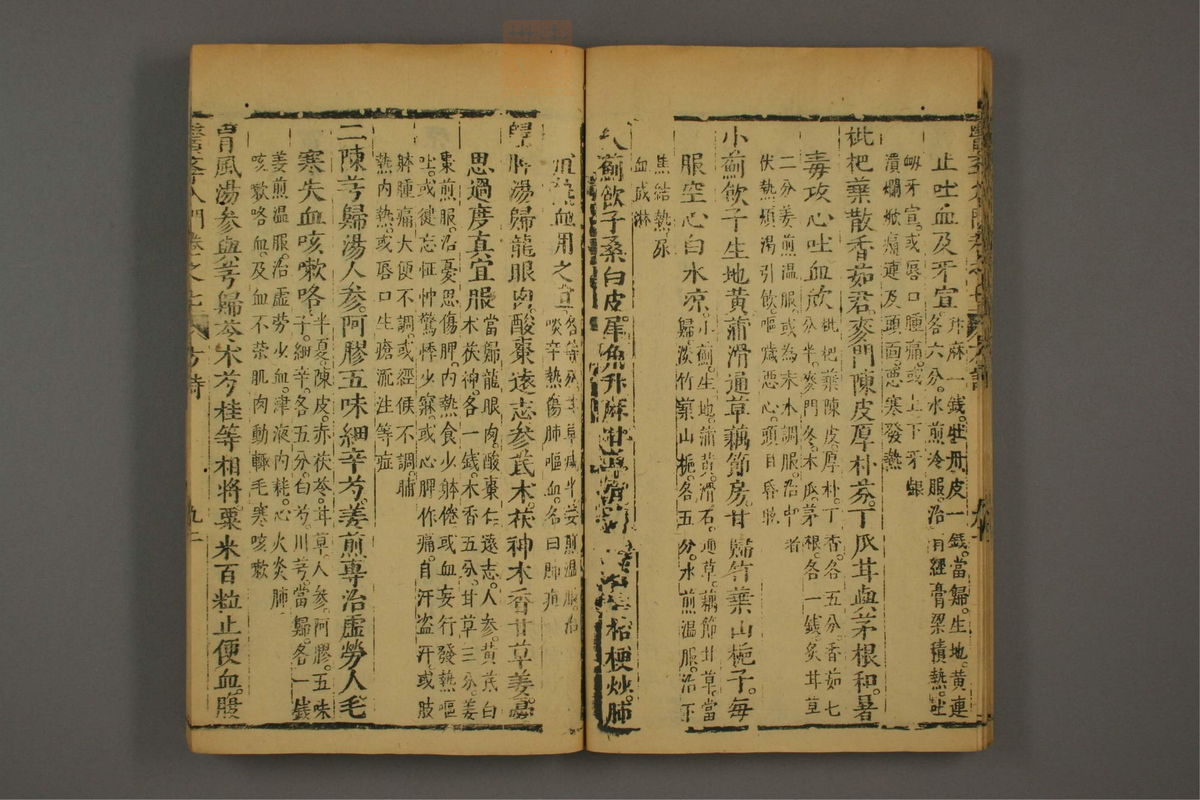 止吐血及牙宣
升麻一錢牡丹皮一錢。當歸。生地。黃連
各六分。水煎冷服。治胃經膏粱積熱。吐
衂牙宣。或唇口腫痛。或上下牙齦
潰爛焮痛連及頭面惡寒發熱
枇杷葉散香茹君。麥門陳皮厚朴芬。丁瓜甘與茅根和。暑
毒攻心吐血欣
枇杷葉陳皮。厚朴。丁香。各五分。香茹七
分半。麥門冬。木瓜。茅根。各一錢。炙甘草
二分姜煎温服。或為末水調服。治中暑
伏熱煩渴引飲。嘔噦惡心。頭目昏眩
小薊飲子生地黃。蒲滑通草藕節房。甘歸竹葉山梔子。每
服空心白水凉。
小薊。生地。蒲黃。滑石。通草。藕節甘草。當
歸。淡竹葉山梔。各五分。水煎温服。治下
焦結熱尿
血成淋
薊飲子桑白皮。犀角升麻甘草
桔梗炒。肺
疽 血用之宜
各等分。甘草減半姜煎温服。治
啖辛熱傷肺嘔血。名曰肺疽
歸脾湯歸龍眼肉。酸棗遠志參芪木。茯神木香甘草姜。憂
思過度真宜服
當歸龍眼肉。酸棗仁。遠志。人參。黃芪白
木茯神。各一錢。木香五分。甘草三分。姜
棗煎服。治憂思傷脾。内熱食少。躰倦或血妄行發熱嘔
吐。或徤忘怔忡驚悸少寐或心脾作痛自汗盗汗。或肢
躰腫痛大便不調。或經候不調。晡
熱内熱。或唇口生瘡流注等症
二陳芎歸湯人參。阿膠五味細辛芍。姜煎專治虛勞人毛
寒失血咳嗽咯
半夏。陳皮。赤茯苓。甘草。人參。阿膠。五味
子。細辛。各五分白芍。川芎。當歸。各一錢
姜煎温服。治虛勞少血。津液内耗。心火炎肺
咳嗽咯血。及血不荣肌肉動輙毛寒咳嗽
胃風湯參與芎歸苓木芍桂等相將粟米百粒止便血。腹
方詩
九二